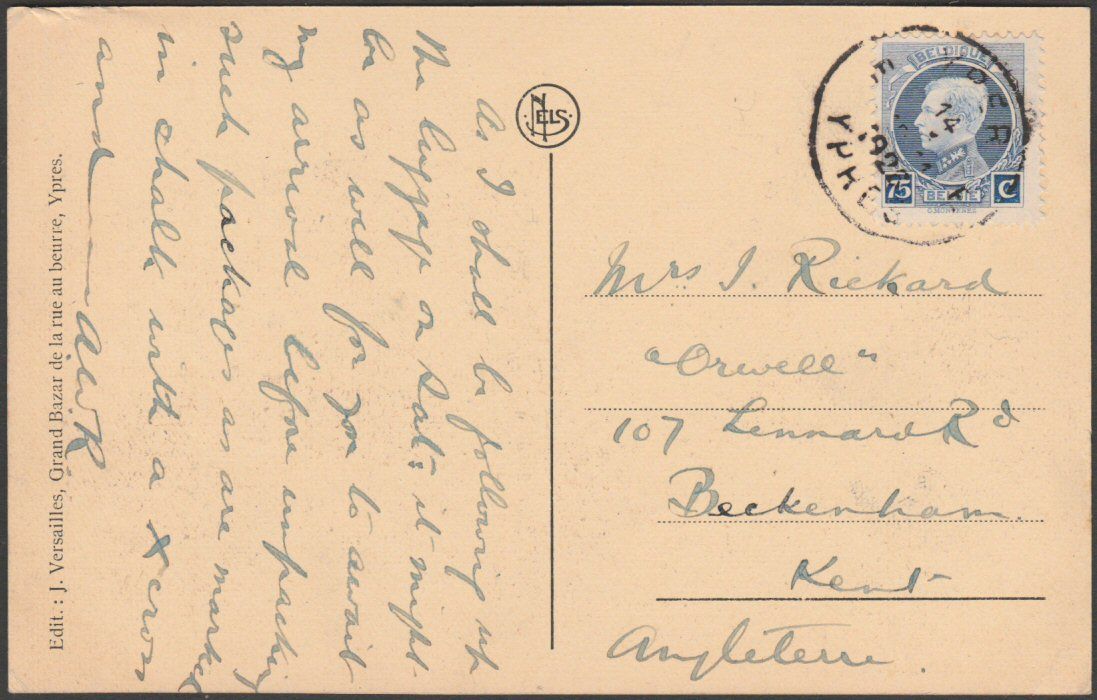 As I shall be following up
the luggage on Sat: it might
be as well for you to await
my arrival before unpacking
such packages as are marked
in chalk with a X cross
and AWR
NELS.
Edit. : J. Versailles, Grand Bazar de la rue au beurre, Ypres.
BELGIQUE
75 C
BELGIË
YPER
14
192
YPRES
Mrs I. Rickard
"Orwell"
107 Lennard Rd
Beckenham.
Kent
Angleterre.